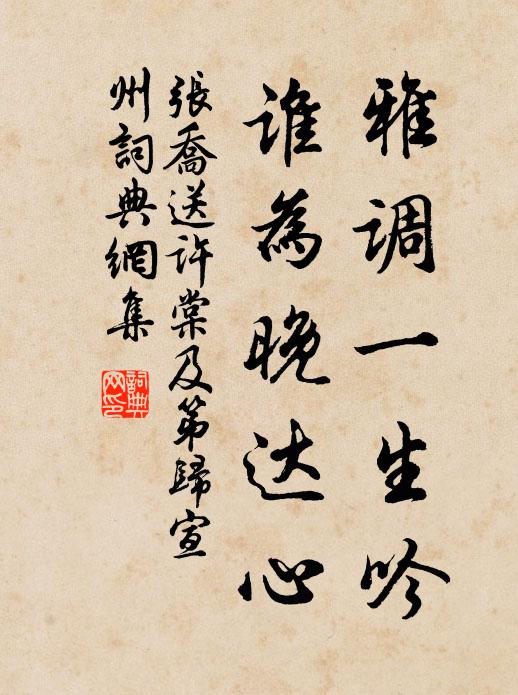 雅调一生吟
谁為晚达心
張喬送許棠及第歸宣
州詞典網集
詞典
网印